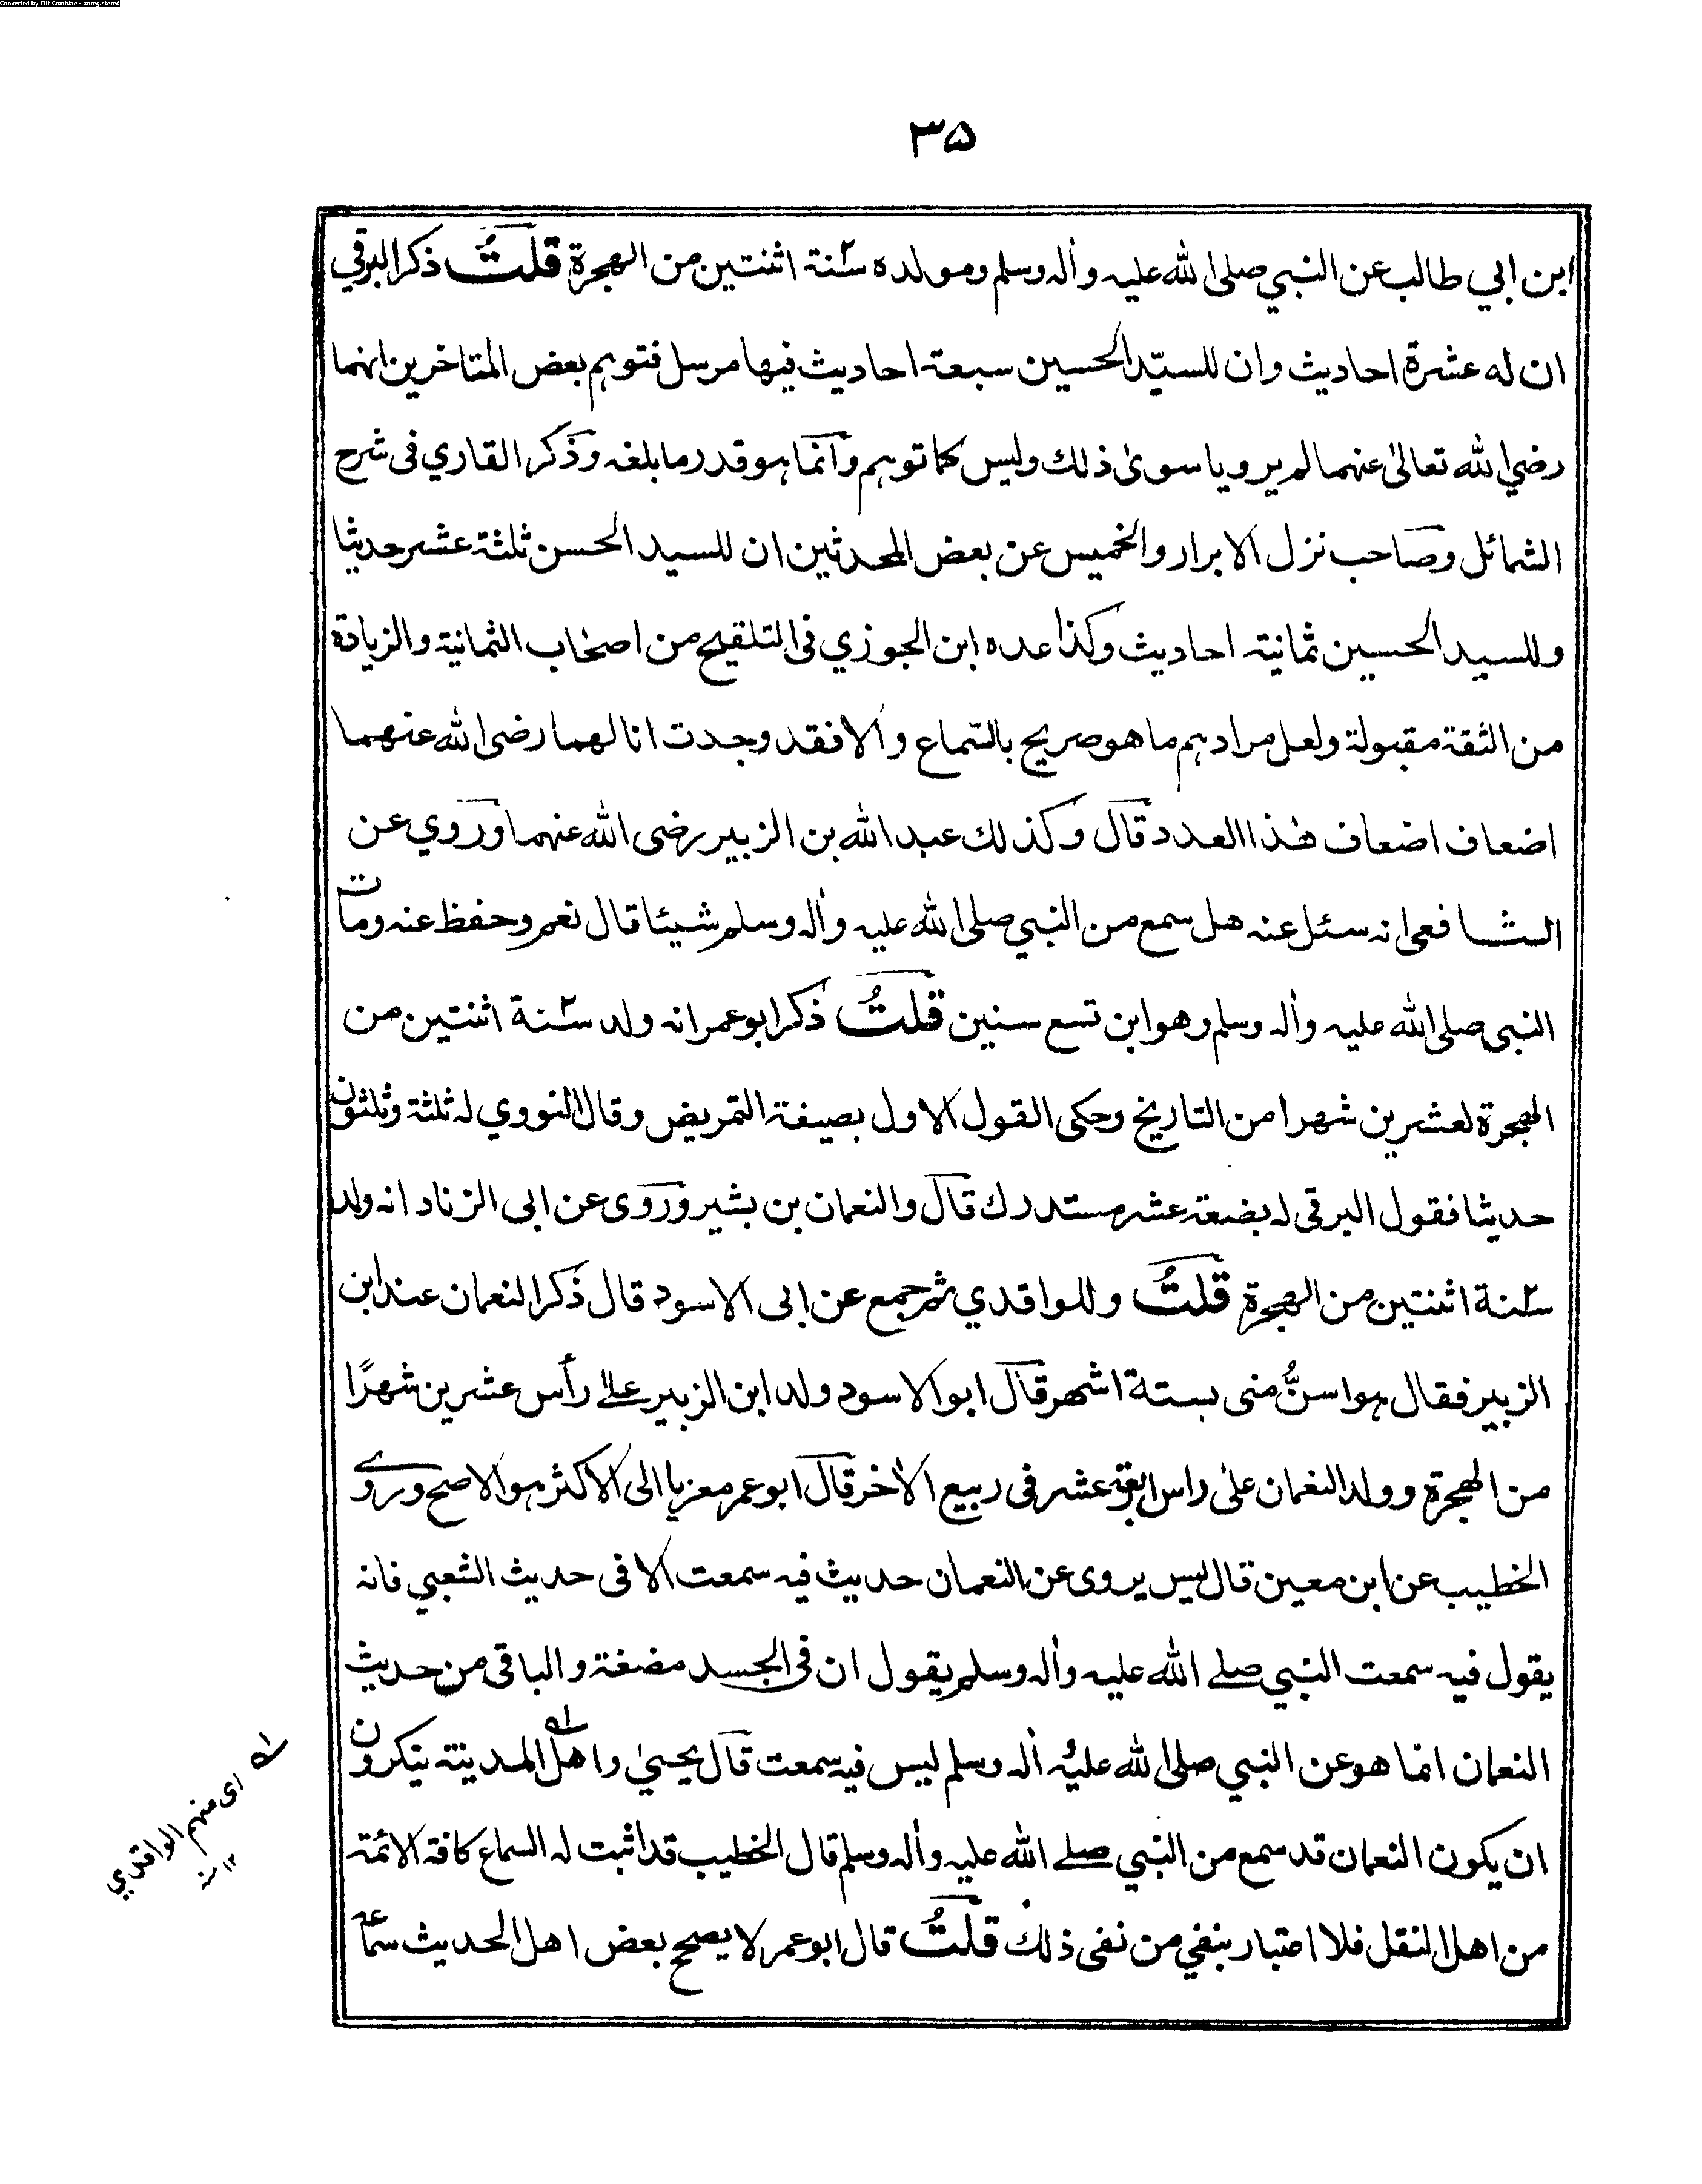 Converted by Tiff Combine - unregistered
۳۵
ابن ابي طالب عن النبي صلى الله عليه واٰله وسلم ومولده سنة اثنتين من الهجرة قلتُ ذكر البرقي
ان له عشرة احاديث وان للسيّد الحسين سبعة احاديث فيها مرسل فتوهم بعض المتاخرين انهما
رضي الله تعالىٰ عنهما لم يرويا سوىٰ ذلك وليس كما توهم وانما هو قدر ما بلغه وذكر القاري فى شرح
الشمائل وصاحب نزل الابرار والخميس عن بعض المحدثين ان للسيد الحسن ثلثة عشر حديثا
وللسيد الحسين ثمانية احاديث وكذا عده ابن الجوزي فى التلقيح من اصحاب الثمانية والزيادة
من الثقة مقبولة ولعل مرادهم ما هو صريح بالسّماع والا فقد وجدت انا لهما رضى الله عنهما
اضعاف اضعاف هٰذا العدد قال وكذلك عبد الله بن الزبير رضى الله عنهما وروي عن
الشافعى انه سئل عنه هل سمع من النبي صلى الله عليه واٰله وسلم شيئا قال نعم وحفظ عنه ومات
النبى صلى الله عليه واٰله وسلم وهو ابن تسع سنين قلتُ ذكر ابو عمر انه ولد سنة اثنتين من
الهجرة لعشرين شهرا من التاريخ وحكى القول الاول بصيغة التمريض وقال النووي له ثلثة وثلثون
حديثا فقول البرقى له بضعة عشر مستدرك قال والنعمان بن بشير وروى عن ابى الزناد انه ولد
سنة اثنتين من الهجرة قلتُ وللواقدي ثم جمع عن ابى الاسود قال ذكر النعمان عند ابن
الزبير فقال هو اسنُّ منى بستة اشهر قال ابو الاسود ولد ابن الزبير على رأس عشرين شهرًا
من الهجرة وولد النعمان علىٰ راس اربعة عشر فى ربيع الاٰخر قال ابو عمر معزيا الى الاكثر هو الاصح وروى
الخطيب عن ابن معين قال ليس يروى عن النعمان حديث فيه سمعت الا فى حديث الشعبي فانه
يقول فيه سمعت النبي صلى الله عليه واٰله وسلم يقول ان فى الجسد مضغة والباقى من حديث
النعمان انما هو عن النبي صلى الله عليه واٰله وسلم ليس فيه سمعت قال يحيىٰ واهل المدينة ينكرون
ان يكون النعمان قد سمع من النبي صلى الله عليه واٰله وسلم قال الخطيب قد اثبت له السماع كافة الائمة
من اهل النقل فلا اعتبار بنفي من نفى ذلك قلتُ قال ابو عمر لا يصحح بعض اهل الحديث سماعه
اى منهم الواقدي
١٢ منه